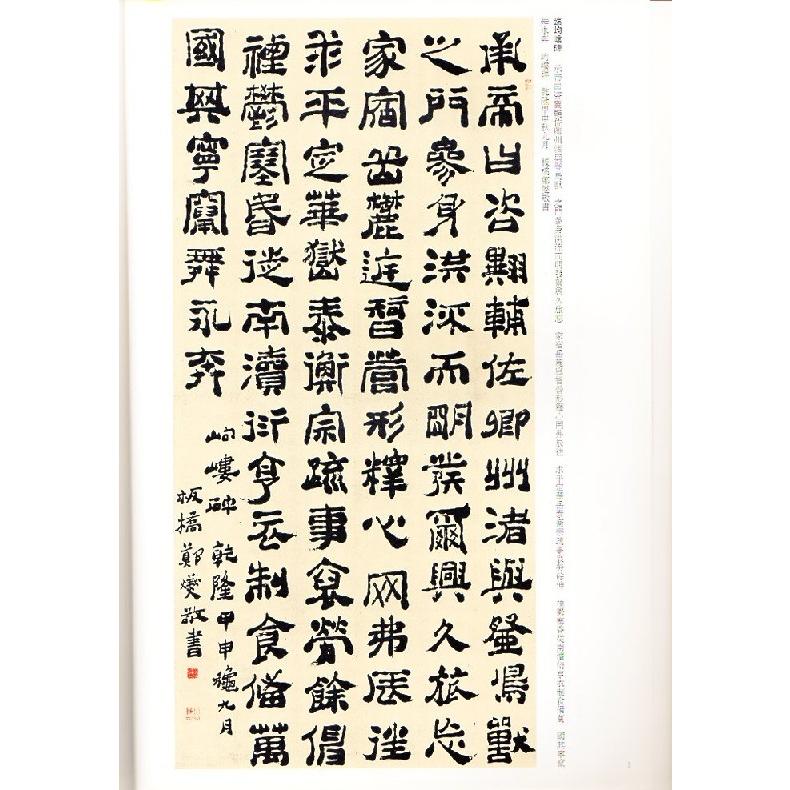 承帝曰咨翼輔佐卿州渚與登鳥獸
之門參身洪流而明發爾興久旅忘
家宿岳麓庭智營形釋心罔弗辰往
求平定華嶽泰衡宗疏事裒勞餘伸
禋鬱塞昏徙南瀆衍亨衣制食備萬
國其寧竄舞永奔
岣嶁碑 乾隆甲申穐九月
板橋鄭燮敬書